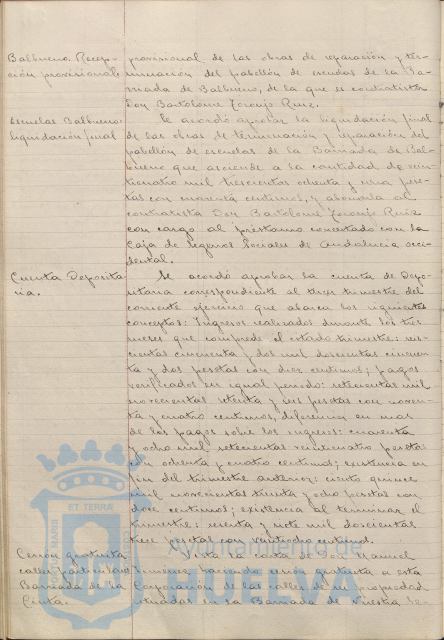 Balbueno. Recep-
ción provisional.
provisional de las obras de reparación y ter-
minación del pabellón de escuelas de la Ba-
rriada de Balbueno, de la que es contratista
Don Bartolomé Toronjo Ruiz.
Escuelas Balbueno:
liquidación final
Se acordó aprobar la liquidación final
de las obras de terminación y reparación del
pabellón de escuelas de la Barriada de Bal-
bueno que asciende a la cantidad de vein-
ticuatro mil trescientas ochenta y una pese-
tas con noventa centimos, y abonarla al
contratista Don Bartolomé Toronjo Ruiz
con cargo al préstamo concertado con la
Caja de Seguros Sociales de Andalucia occi-
dental.
Cuenta Deposita-
ria.
Se acordó aprobar la cuenta de Depo-
sitaria correspondiente al tercer trimestre del
corriente ejercicio que abarca los siguientes
conceptos: Ingresos realizados durante los tres
meses que comprende el citado trimestre: seis-
cientas cincuenta y dos mil doscientas cincuen-
ta y dos pesetas con diez centimos; pagos
verificados en igual periodo: setecientas mil
novecientas setenta y seis pesetas con noven-
ta y cuatro centimos, diferencia en mas
de los pagos sobre los ingresos: cuarenta
y ocho mil setecientas veinticuatro pesetas
con ochenta y cuatro centimos; existencia en
fin del trimestre anterior: ciento quince
mil novecientas treinta y ocho pesetas con
doce centimos; existencia al terminar el
trimestre: sesenta y siete mil doscientas
trece pesetas con veintiocho centimos.
Cesión gratuita
calles particulares
Barriada de la
Cinta.
Vista la carta de Don Manuel
Jimenez haciendo cesión gratuita a esta
Corporación de las calles de su propiedad
situadas en la Barriada de Nuestra Se-
Ayuntamiento de
HUELVA